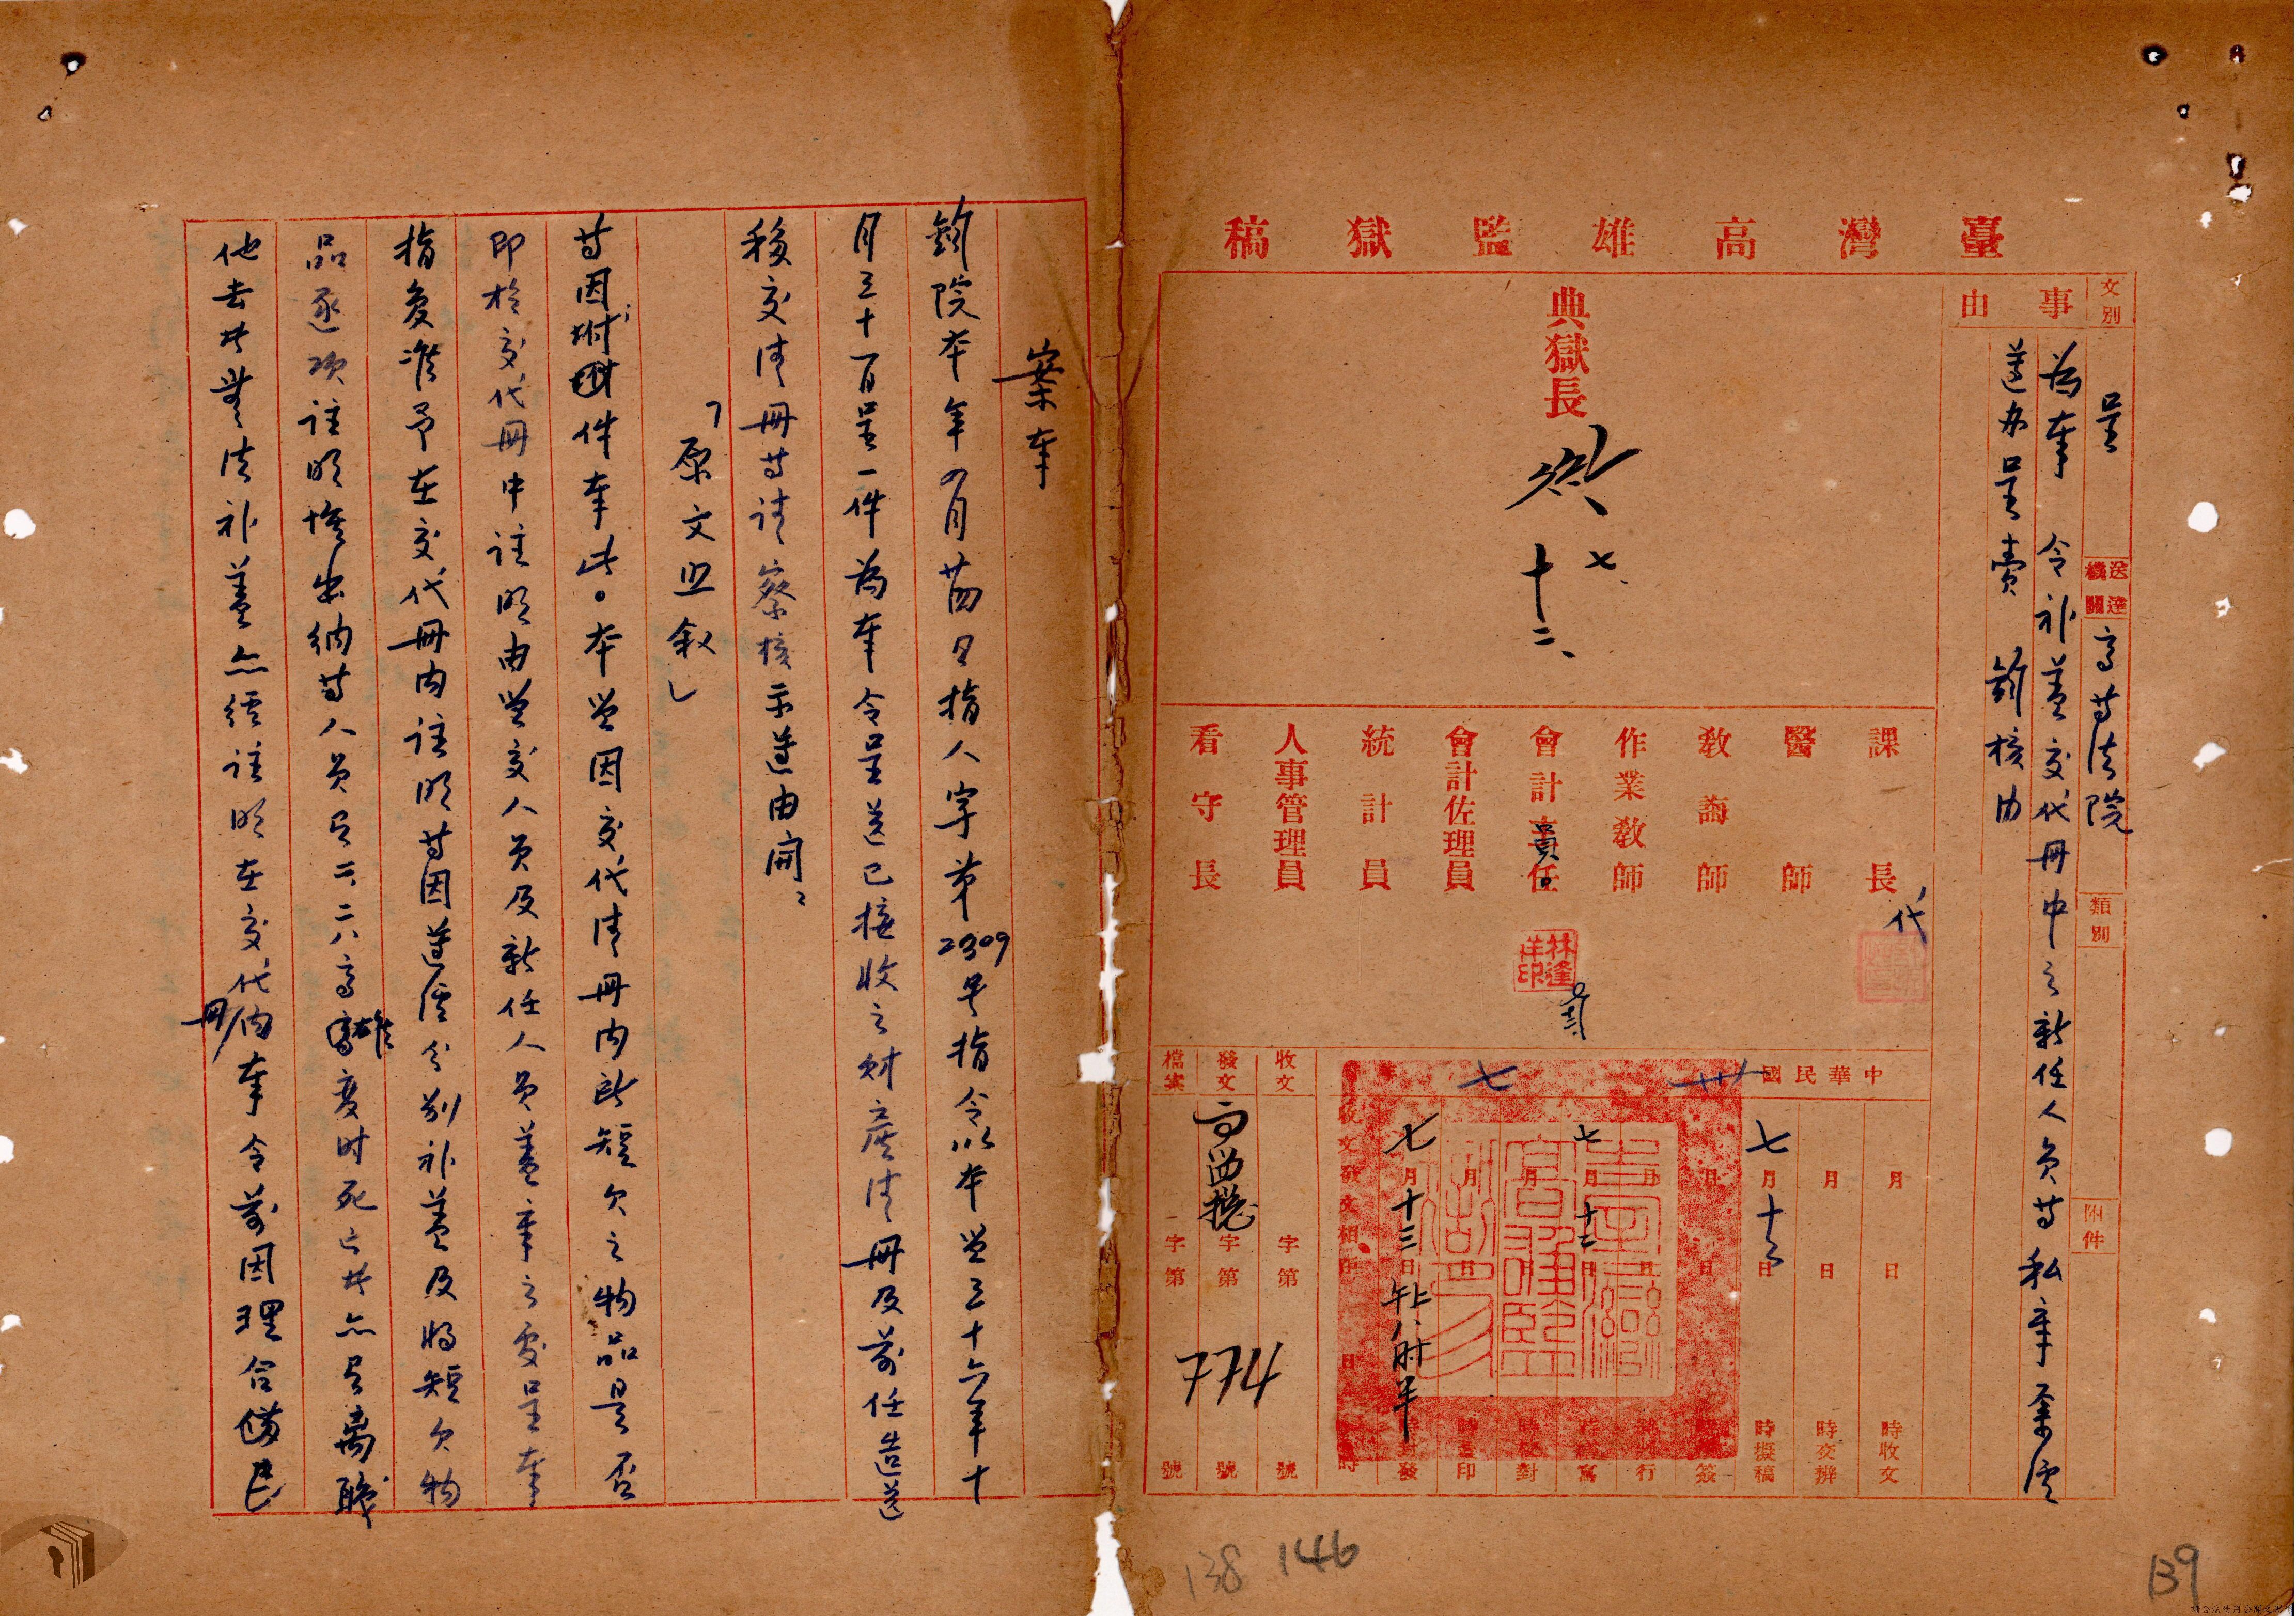 臺灣高雄監獄稿
文別
呈
送達機關
高等法院
類別
附件
事由
為奉 令補蓋交代冊中之新任人員等私章案經
遵办呈賫 鈞核由
典獄長
七
十二、
課長
代
醫師
教誨師
作業教師
會計主任
員
林逢洋印
會計佐理員
統計員
人事管理員
看守長
中華民國
卅
七
年
月 日 時收文
月 日 時交辦
七月十二日 時擬稿
七月十二日 時繕寫
月 日 時校對
月 日 時蓋印
七月十三日午上八時半 時封發
收文發文相距 日 時
收文 字第 號
發文 字第 774 號
檔案 字第 號
案奉
鈞院本年 月 日指人字第2309号指令以本监三十六年十
月三十 日呈一件為奉令呈送已接收之財產清冊及前任造送
移交清冊等請察核示遵由開:
「原文照叙」
等因附 件奉此。本监因交代清冊内所短欠之物品是否
即於交代冊中註明由监交人員及新任人員蓋章之處呈奉
指复准予在交代冊内註明等因遵經分别补蓋及將短欠物
品逐项註明惟出納等人員有二、二八高雄 变时死亡共亦有离職
他去共無法补蓋亦經註明在交代冊内奉令前因理合備文
138 146
139